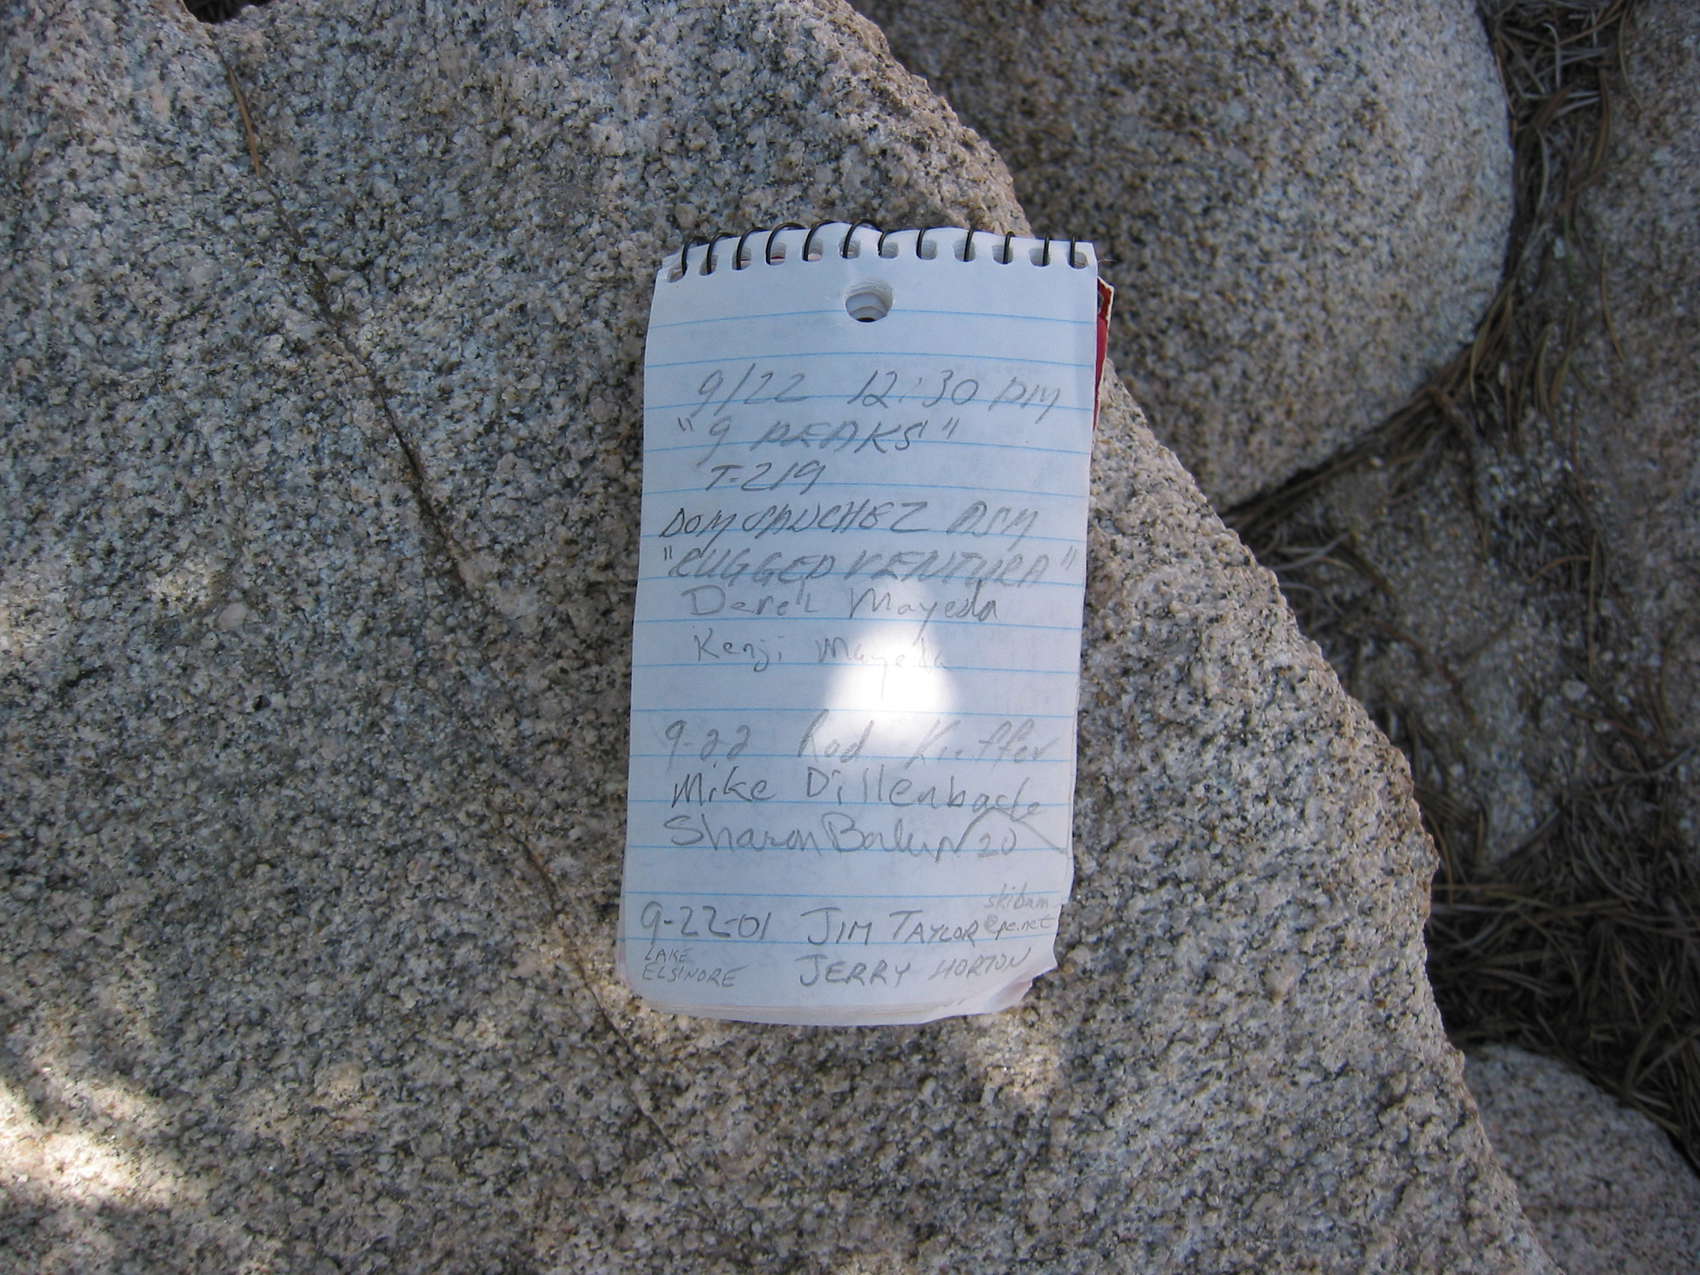 9/22 12:30 PM
"9 PEAKS"
T-219
DOM SANCHEZ ASM
"RUGGED VENTURA"
Derek Mayeda
Kenji Mayeda
9-22 Rod Kieffer
Mike Dillenback
Sharon 20
skibum
9-22-01 JIM TAYLOR @pe.net
LAKE
ELSINORE JERRY HORTON